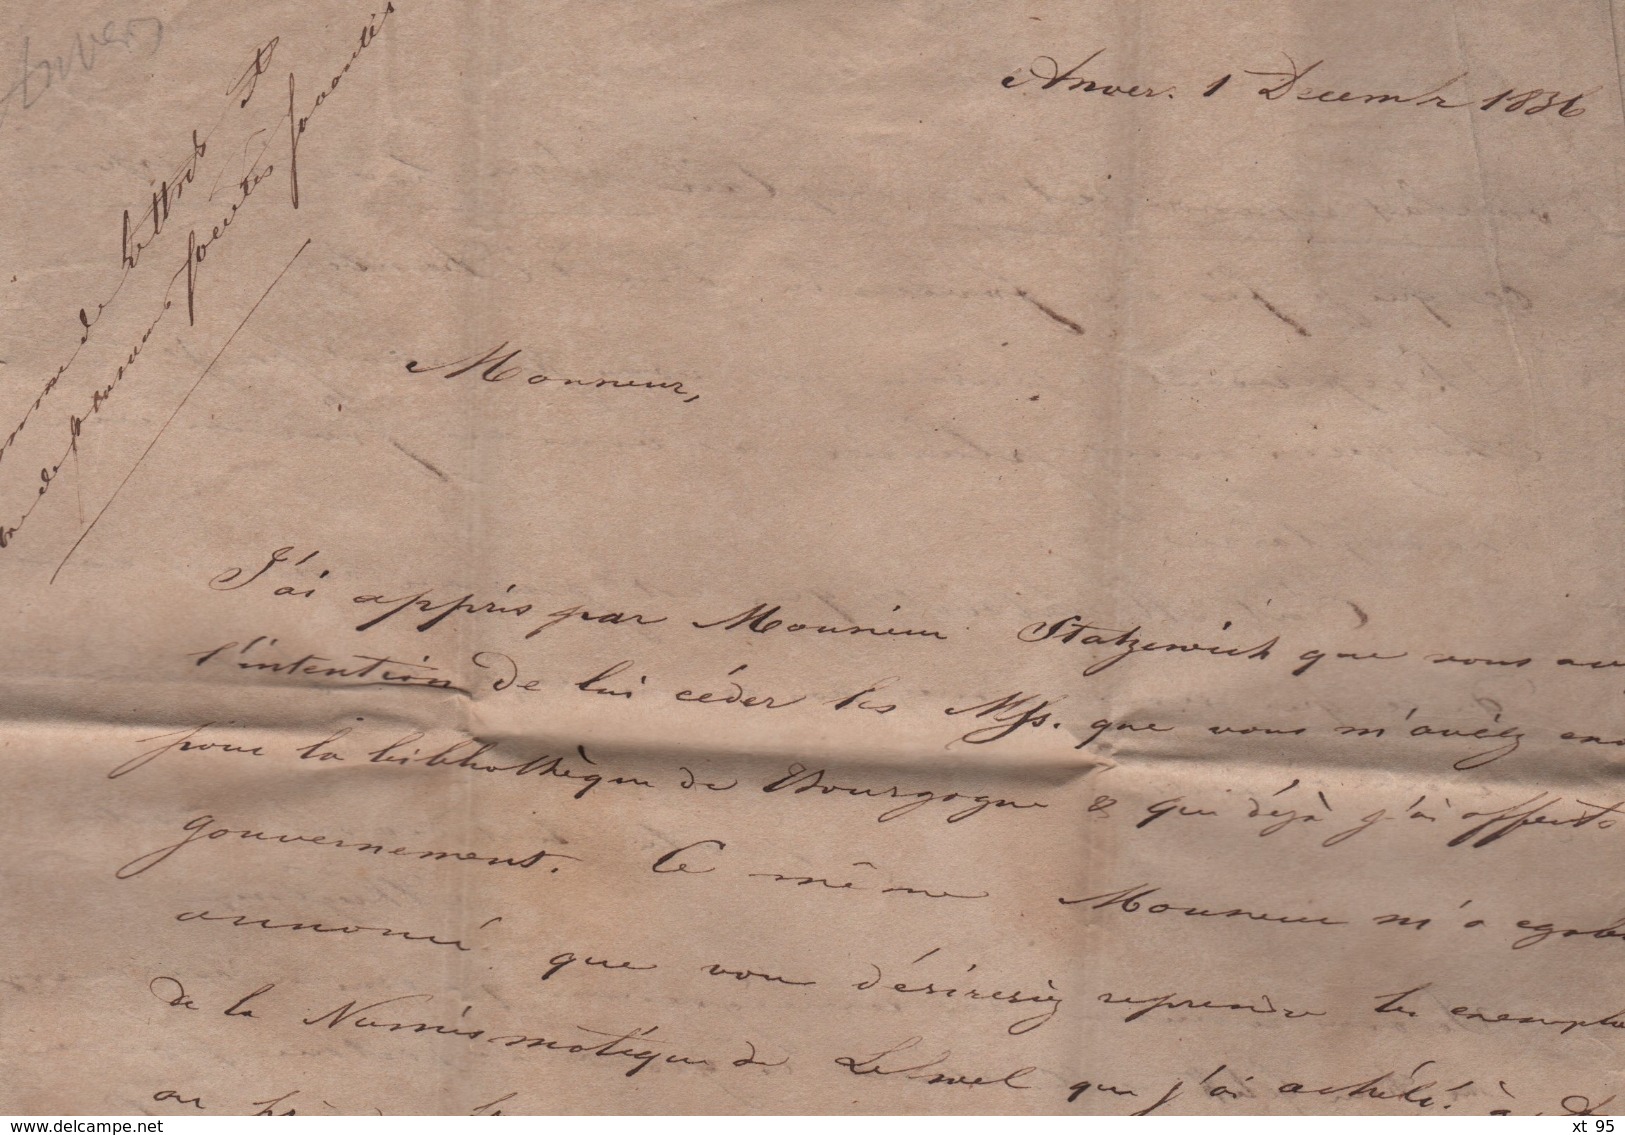 Anvers
Anver. 1 Decembr 1836
homme de lettres &
de plusieurs sociétés savantes
Monsieur,
J'ai appris par Monsieur Statzewich que vous av
l'intention de lui céder les Mss. que vous m'aviéz env
pour la bibliothèque de Bourgogne & que déjà j'ai offerts
gouvernement. Ce même Monsieur m'a egale
annoncé que vous désireriéz reprendre les exempla
de la Numismatique de Lelewel que j'ai achété à
www.delcampe.net
xt 95